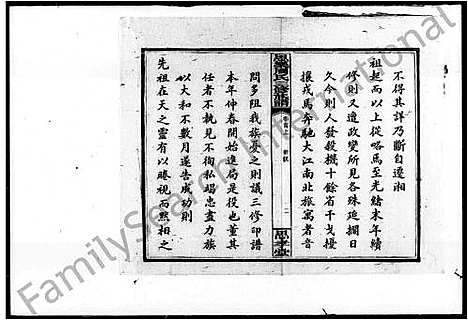 不得其詳乃斷自遷湘
祖起而以上從略焉至光緒末年續
修則又遭政變所見各殊延擱日
久今則人發殺機十餘省干戈擾
攘戎馬奔馳大江南北旅寓者音
卷首上
二
思孝堂
問多阻我族憂之則議三修印譜
本年仲春開始進局是役也董其
任者不執見不徇私竭忠盡力族
以大和不數月遂告成功則
先祖在天之靈有以睠視而黙相之
FamilySearch International